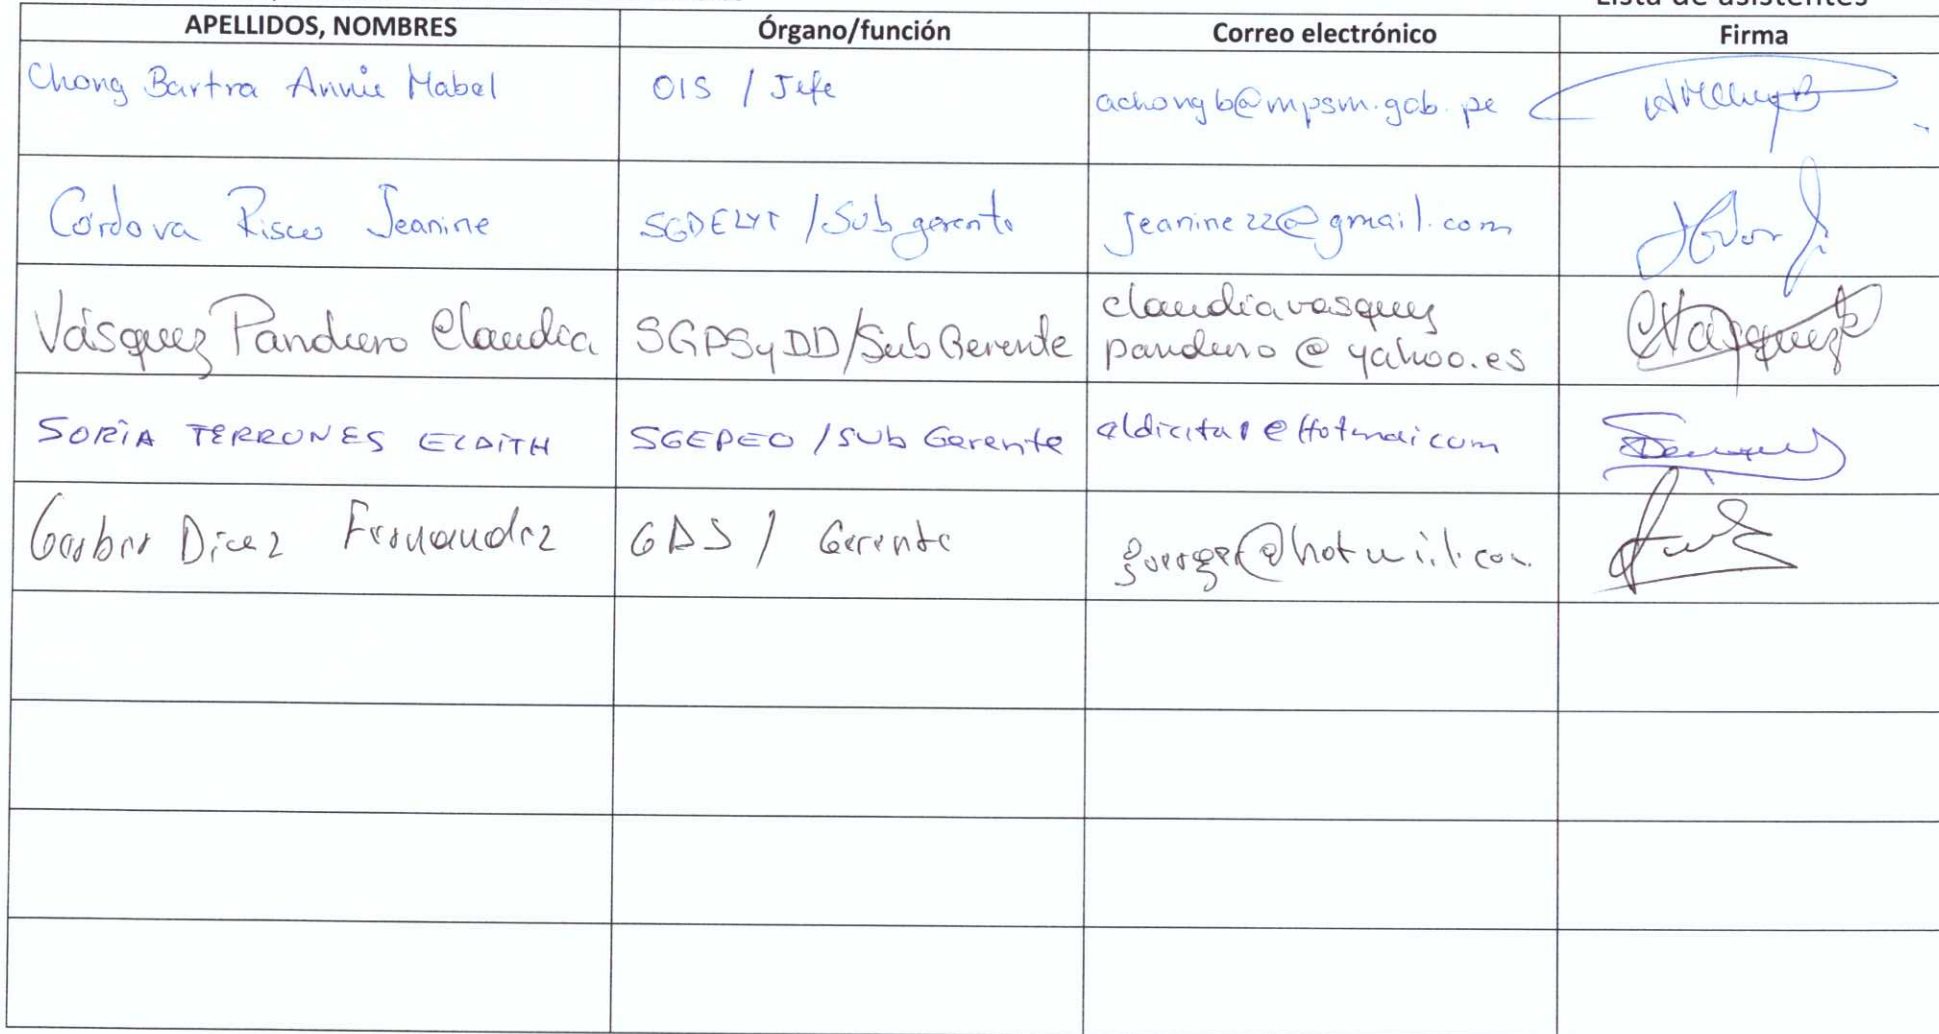 Lista de asistentes
APELLIDOS, NOMBRES Órgano/función Correo electrónico Firma
Chong Bartra Annie Mabel OIS / Jefe achongb@mpsm.gob.pe
Córdova Risco Jeanine SGDELYT / Sub gerente jeanine22@gmail.com
Vásquez Panduro Claudia SGPSyDD/Sub Gerente claudiavasquez
panduro@yahoo.es
SORIA TERRONES ELDITH SGEPEO / SUB Gerente
Díaz Fernandez GDS / Gerente